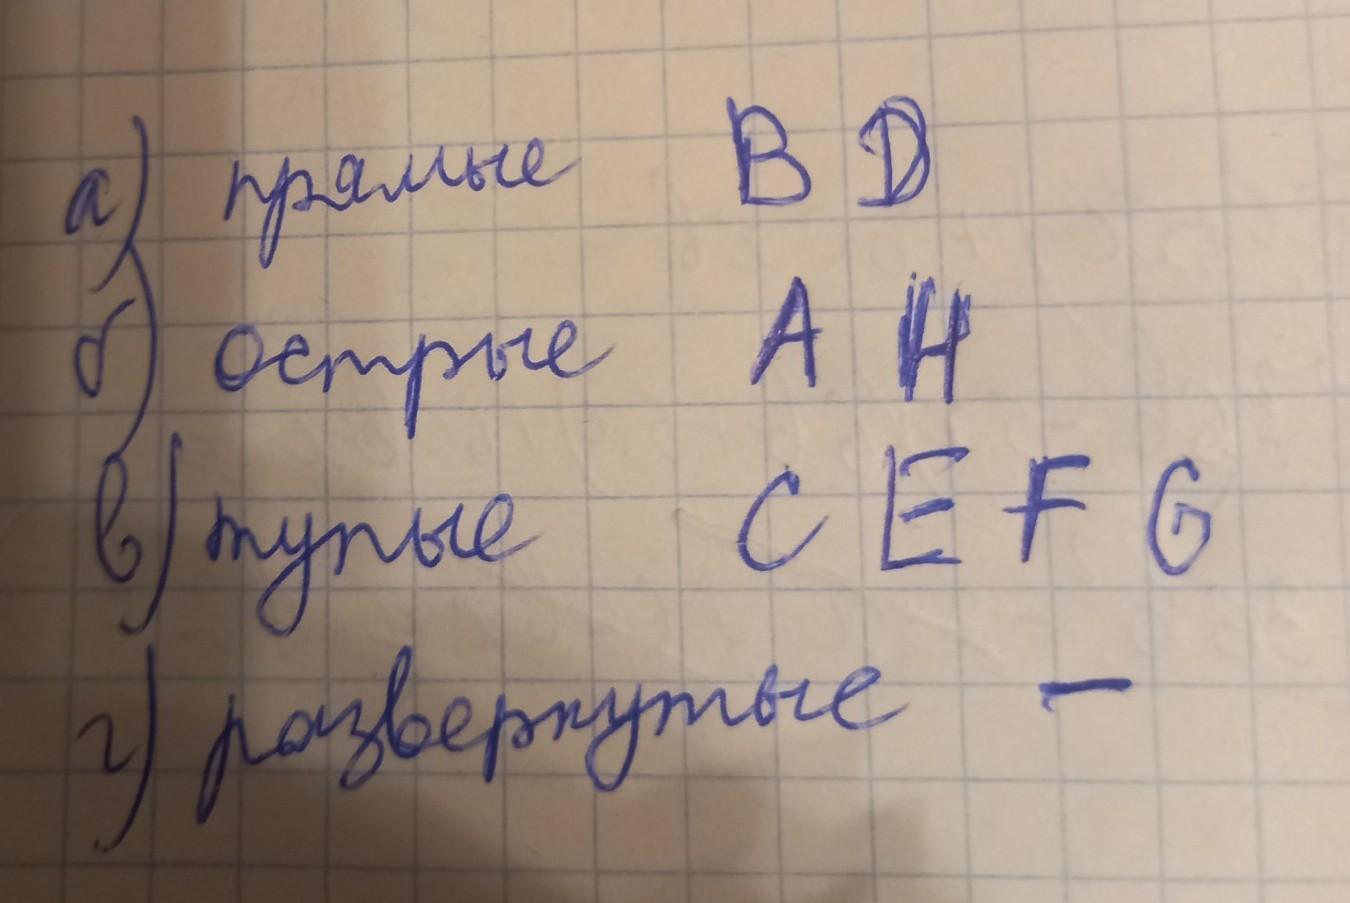 а) прямые B D
б) острые A H
в) тупые C E F G
г) развернутые —